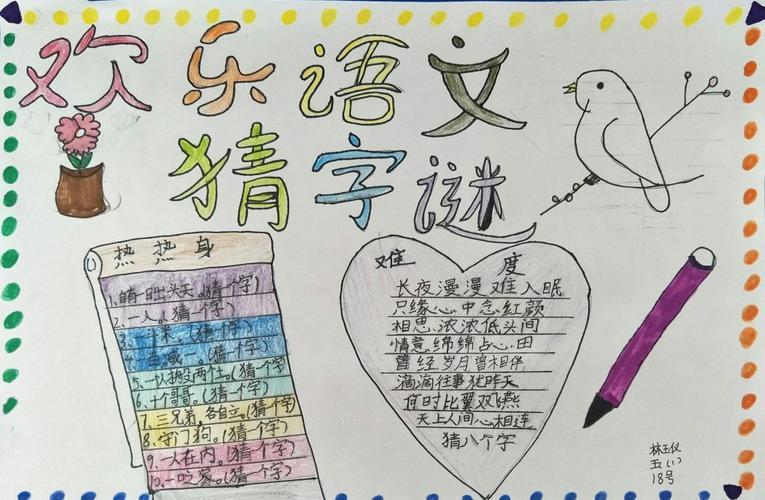 欢乐语文
猜字谜
热热身
1.自有一日出头天。(猜一个字)
2.一人。(猜一个字)
3.十米。(猜一个字)
一。(猜一个字)
5.(猜一个字)
6.十个哥哥。(猜一个字)
7.三兄弟,各自立。(猜个字
8.守门狗。(猜一个字)
9.一人在内。(猜一个字)
10.一吃家。(猜一个字)
难度
长夜漫漫难入眠
只缘心中念红颜
相思浓浓低头间
情意绵绵占心田
曾经岁月曾相伴
滴滴往事犹昨天
何时比翼双飞燕
天上人间心相连
猜八个字
林玉仪
五(1)
18号